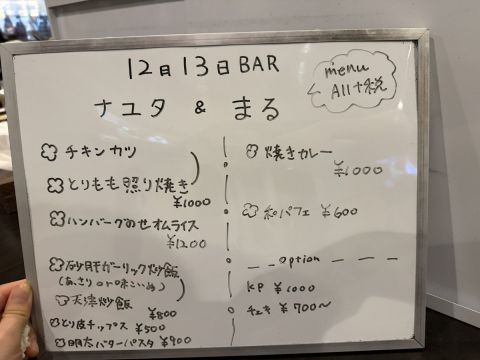 12月13日BAR
ナユタ & まる
menu
All+税
チキンカツ
とりもも照り焼き
¥1000
ハンバーグのせオムライス
¥1200
砂肝ガーリック炒飯
(あさりor味こいめ)
天津炒飯
¥800
とり皮チップス ¥500
明太バターパスタ ¥900
焼きカレー
¥1000
和パフェ ¥600
option
KP ¥1000
チェキ ¥700〜